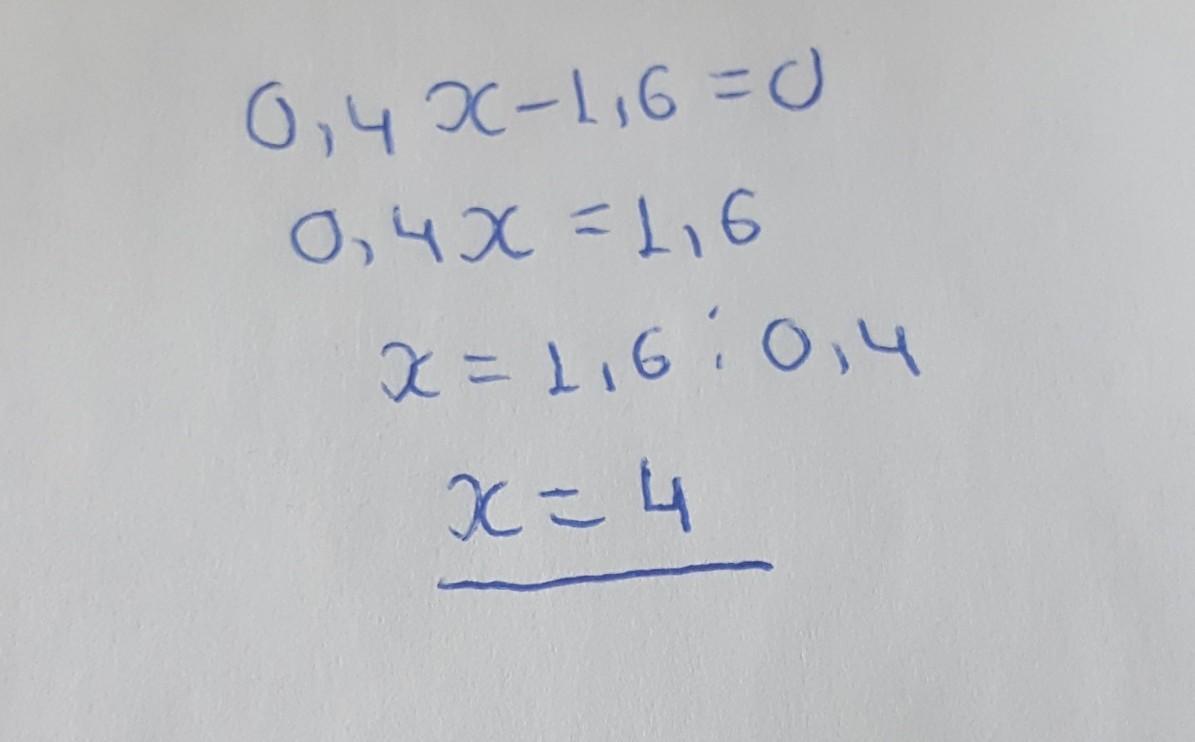 0,4x-1,6=0
0,4x=1,6
x=1,6:0,4
x=4